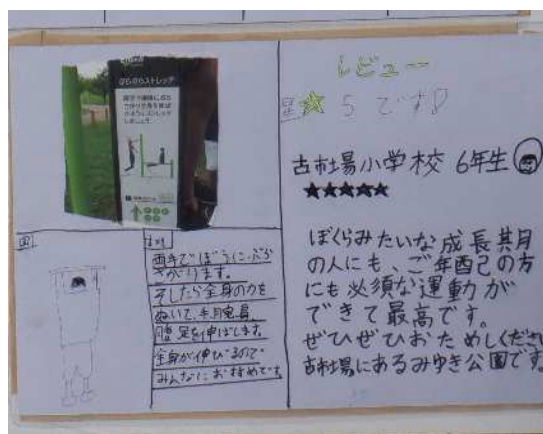 ぶらぶらストレッチ
両手でぼうにぶら
さがります。
そしたら全身の力を
ぬいて、手、腕、肩、
腹、足を伸ばします。
全身が伸びるので
みんなにおすすめです。
レビュー
星☆5です♪
古市場小学校 6年生
★★★★★
ぼくらみたいな成長期
の人にも、ご年配の方
にも必須な運動が
できて最高です。
ぜひぜひおためしください
古市場にあるみゆき公園です。